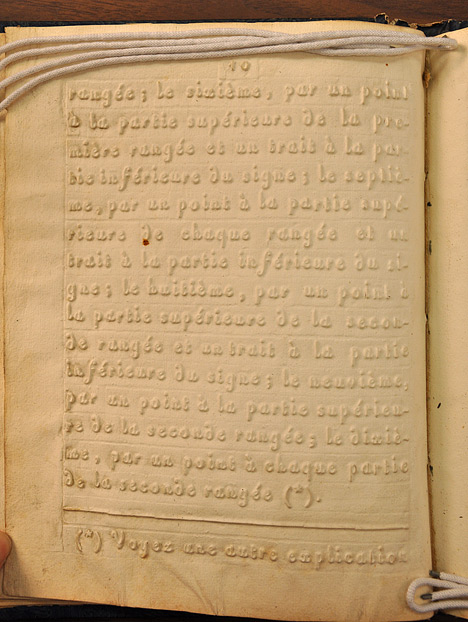 10
rangée; le sixième, par un point
à la partie supérieure de la pre-
mière rangée et un trait à la par-
tie inférieure du signe; le septiè-
me, par un point à la partie supé-
rieure de chaque rangée et un
trait à la partie inférieure du si-
gne; le huitième, par un point à
la partie supérieure de la secon-
de rangée et un trait à la partie
inférieure du signe; le neuvième,
par un point à la partie supérieu-
re de la seconde rangée; le dixiè-
me, par un point à chaque partie
de la seconde rangée (*).
(*) Voyez une autre explication